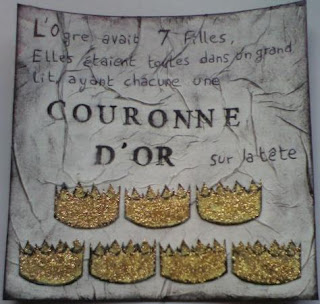 L'Ogre avait 7 Filles,
Elles étaient toutes dans un grand
lit, ayant chacune une
COURONNE
D'OR sur la tête